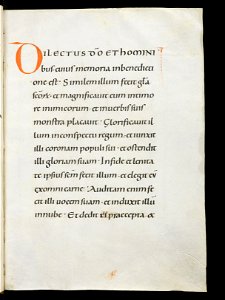 DILECTUS DŌ ET HOMINI
bus cuius memoria inbenedicti
one est · Similem illum fecit gl̄a
scōrx · et magnificauit eum intimo
re inimicorum · et inuerbis suis
monstra placauit · Glorificauit il
lum inconspectu regum · et iunxit
illi coronam populi sui · et ostendit
illi gloriam suam · In fide et lenita
te ipsius scm̄ fecit illum · et elegit ex
exomni carne · Auditam enim fe
cit illi uocem suam · et induxit illu
innube · Et dedit illi praecepta · &